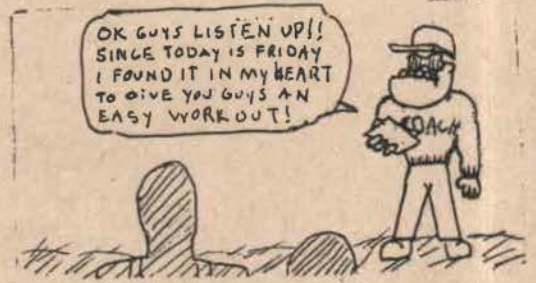 OK GUYS LISTEN UP!!
SINCE TODAY IS FRIDAY
I FOUND IT IN MY HEART
TO GIVE YOU GUYS AN
EASY WORKOUT!
COACH